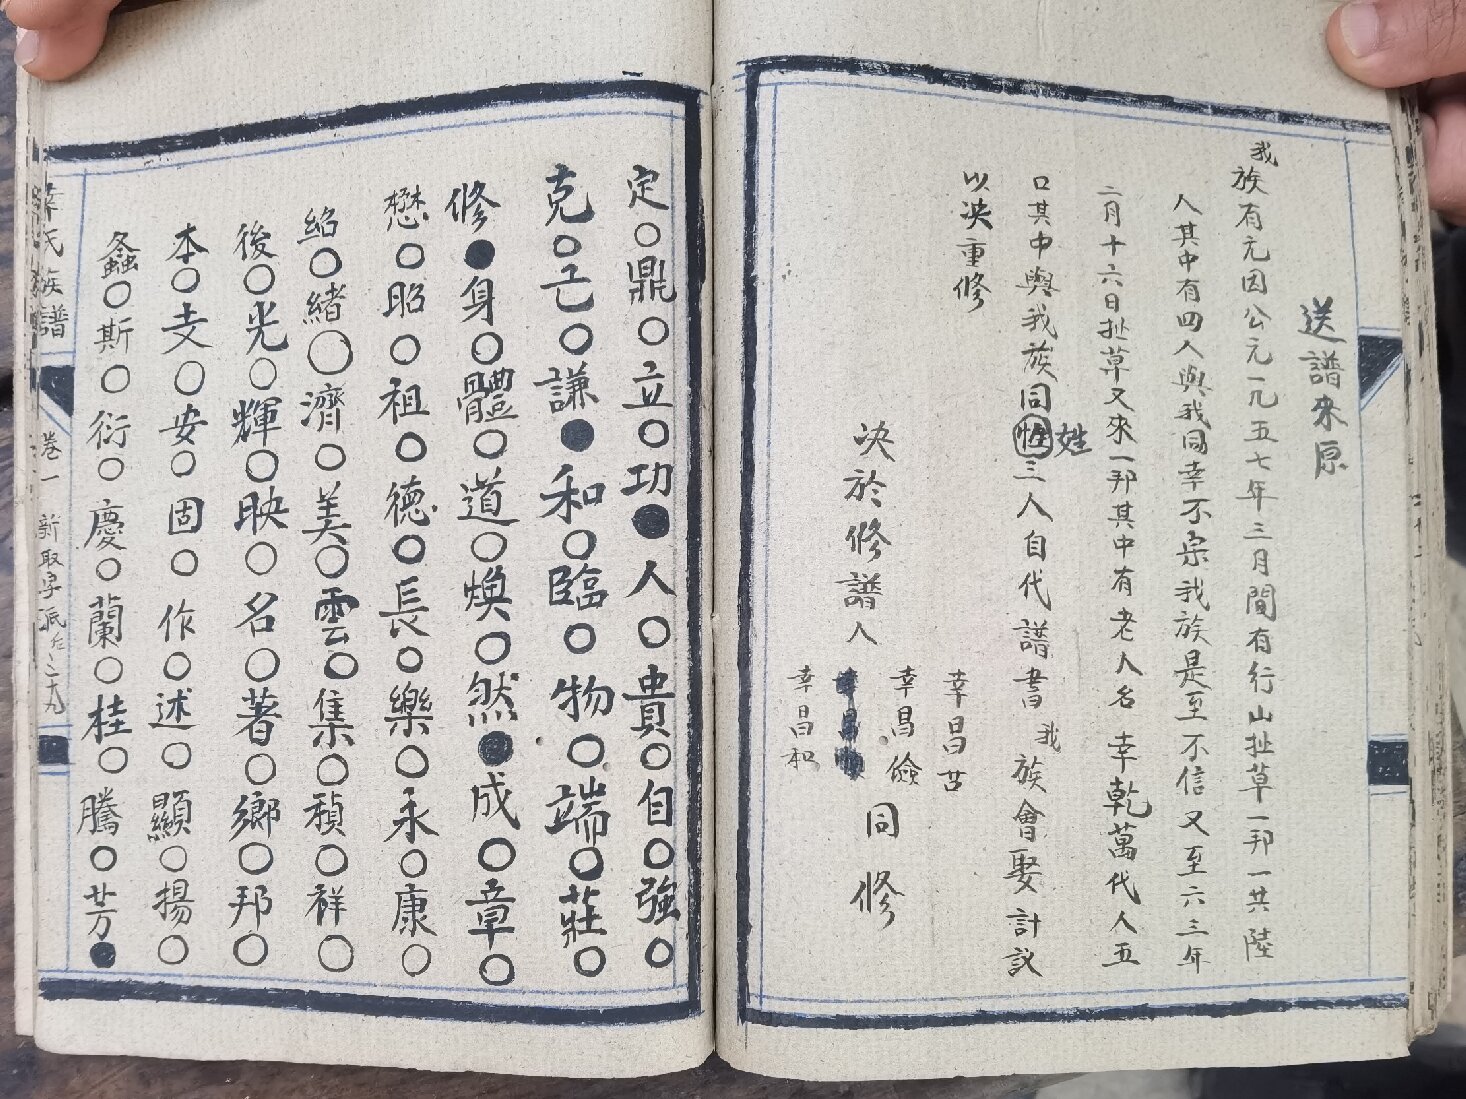 送譜來原
我族有元因公元一九五七年三月間有行山扯草一邦一共陸
人其中有四人與我同幸不宗我族是至不信又至六三年
二月十六日扯草又來一邦其中有老人名幸乾萬代人五
口其中與我族同性姓三人自代譜書我族會娶計議
以决重修
决於修譜人
幸昌苔
幸昌儉
幸昌和
同修
定○鼎○立○功●人○貴○自○強○
克○己○謙●和○臨○物○端○莊○
修●身○體○道○煥○然●成○章○
懋○昭○祖○德○長○樂○永○康○
紹○緒○濟○美○雲○集○禎○祥○
後○光○輝○映○名○著○鄉○邦○
本○支○安○固○作○述○顯○揚○
螽○斯○衍○慶○蘭○桂○騰○芳●
幸氏族譜
卷一
新取字派